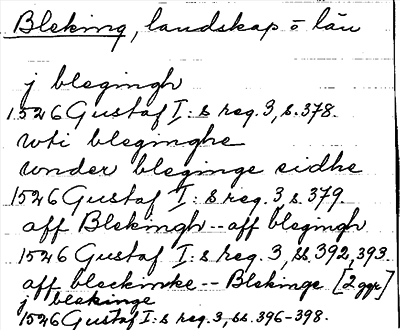 Bleking, landskap o län
j blegingh
1526 Gustaf I:s reg. 3, s. 378.
wti bleginghe
wnder bleginge sidhe
1526 Gustaf I:s reg. 3, s. 379.
aff Blekingh -- aff blegingh
1526 Gustaf I:s reg. 3, ss 392, 393
aff bleckinke -- Blekinge [2 ggr]
j blekinge
1526 Gustaf I:s reg. 3, ss. 396-398.